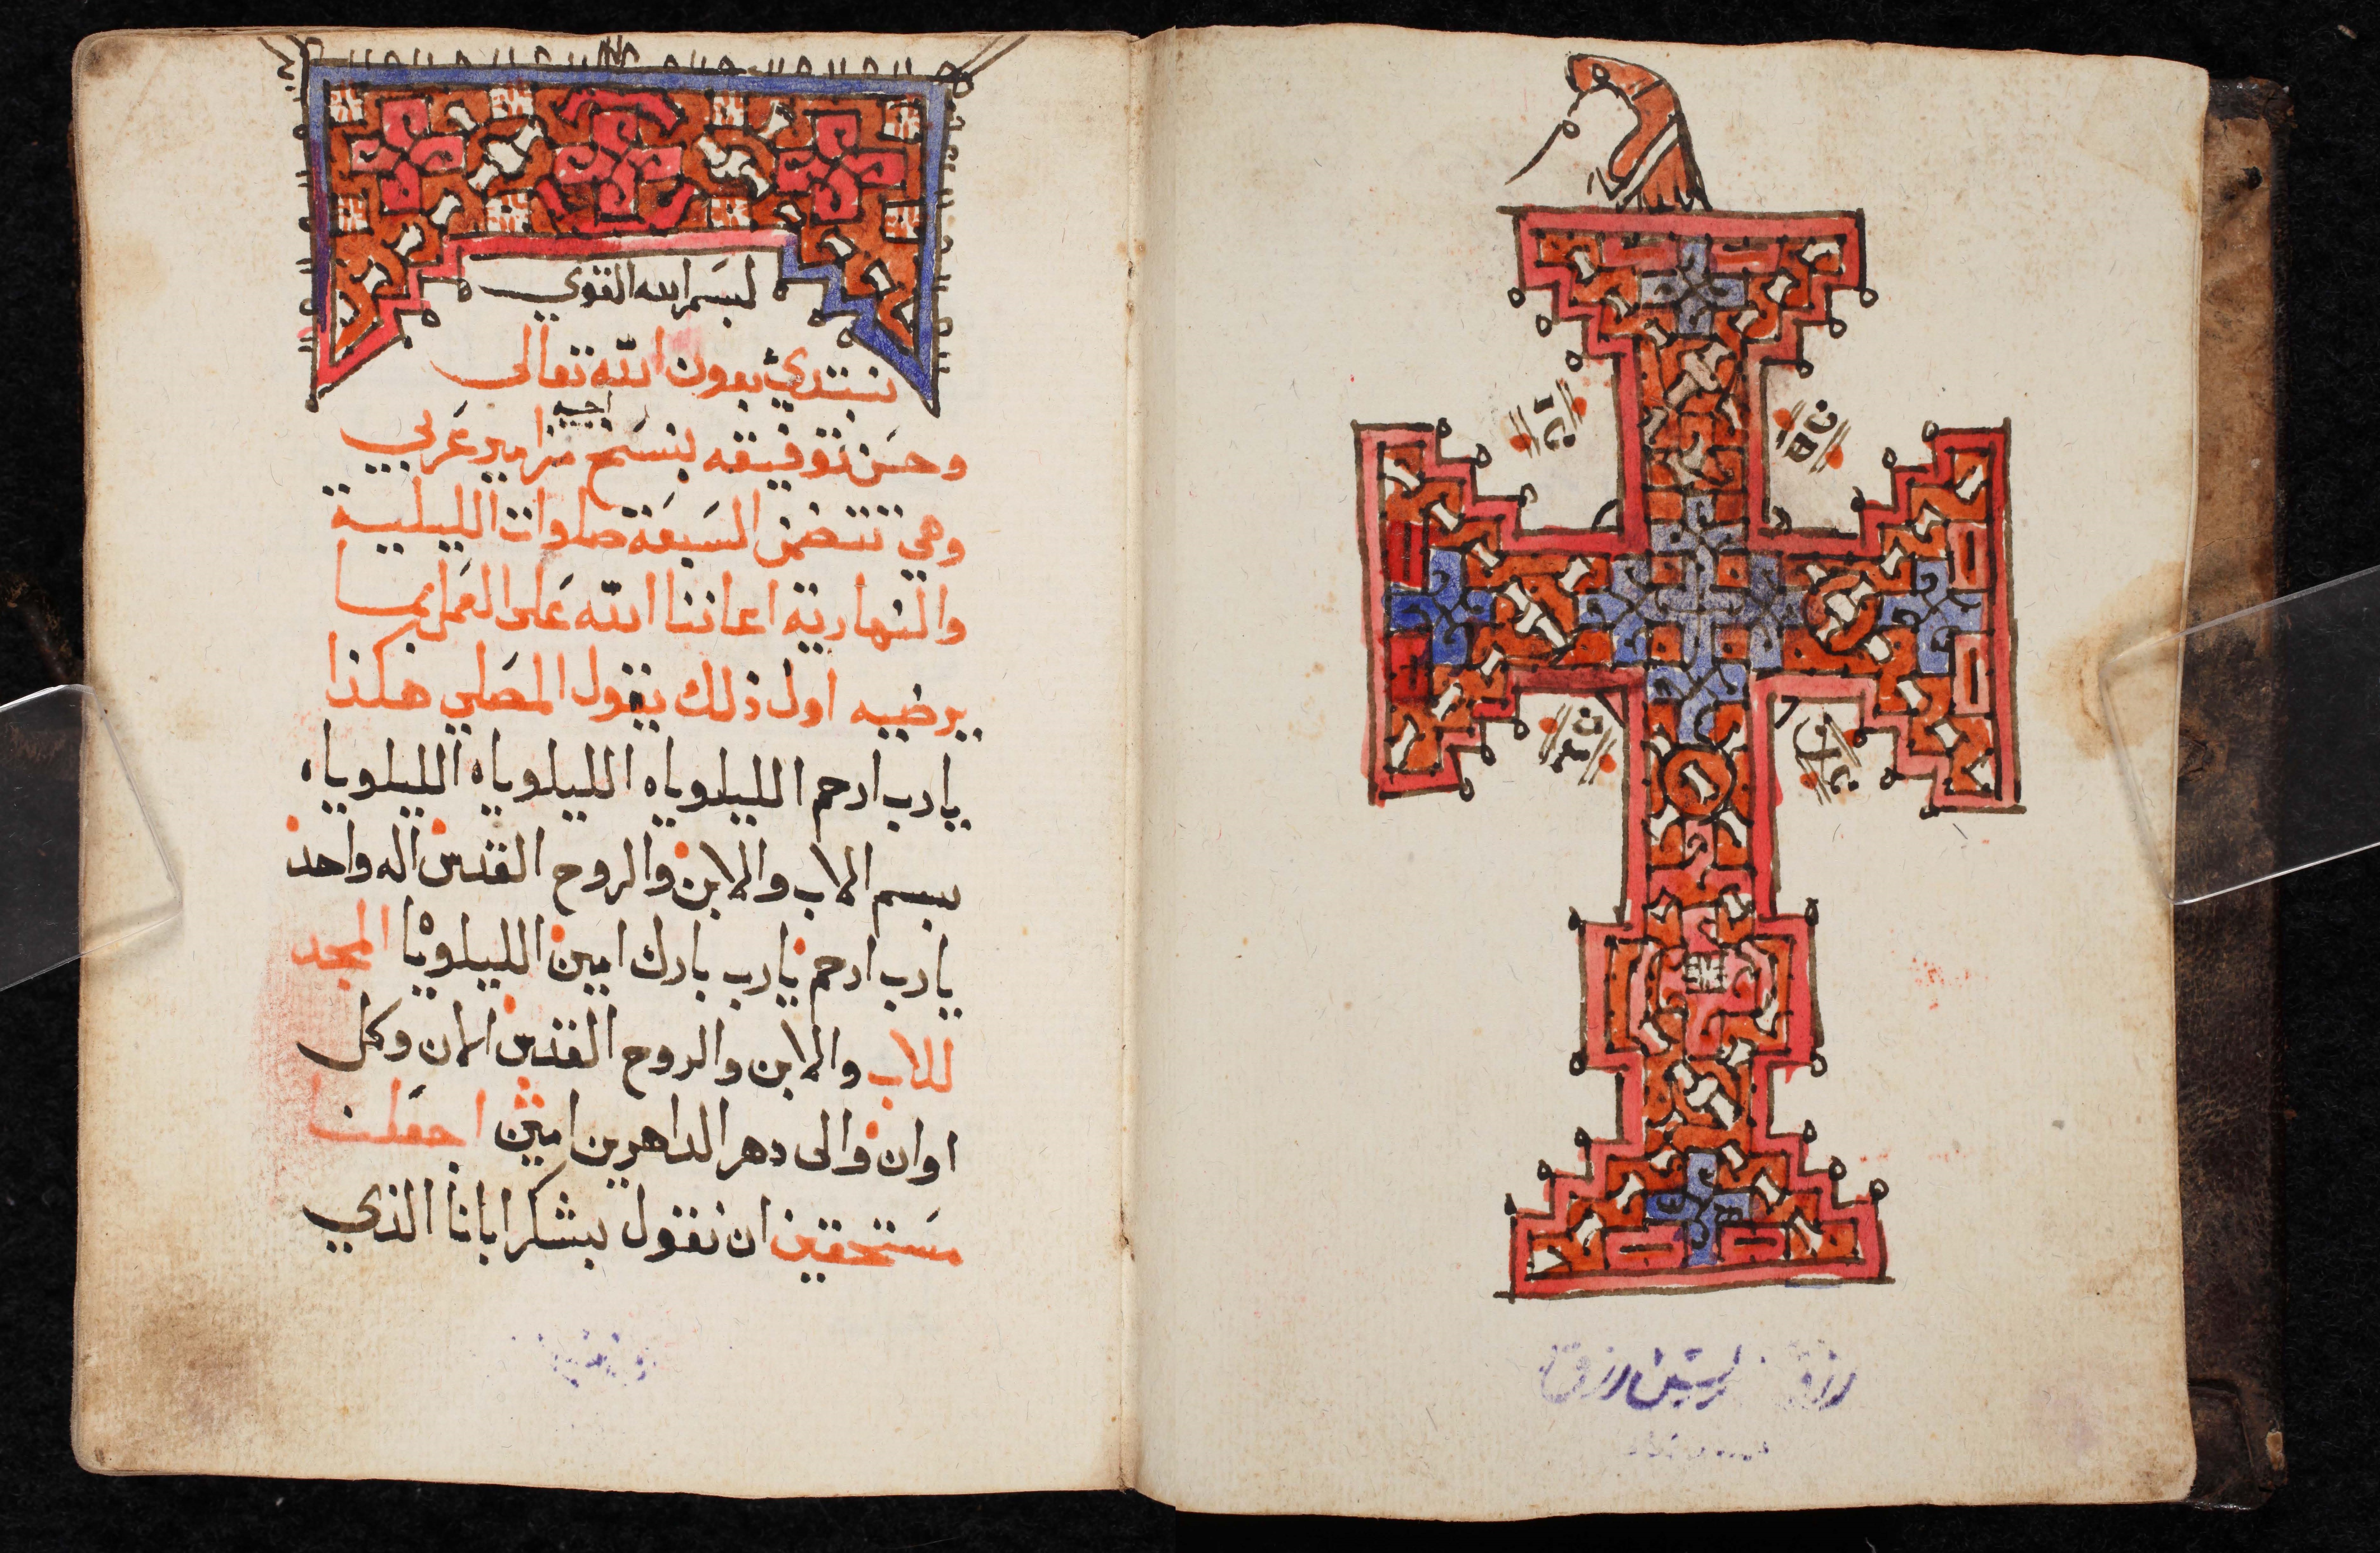 بسم الله القوي
نبتدئ بعون الله تعالى
وحسن توفيقه بنسخ مزامير عربي
وهي تتضمن السبعة صلوات الليلية
والنهارية اعاننا الله على العمل بما
يرضيه اول ذلك يقول المصلي هكذا
يارب ارحم الليلوياه الليلوياه الليلوياه
بسم الاب والابن والروح القدس اله واحد
يارب ارحم يارب بارك امين الليلويا المجد
للاب والابن والروح القدس الان وكل
اوان والى دهر الداهرين امين اجعلنا
مستحقين ان نقول بشكر ابانا الذي